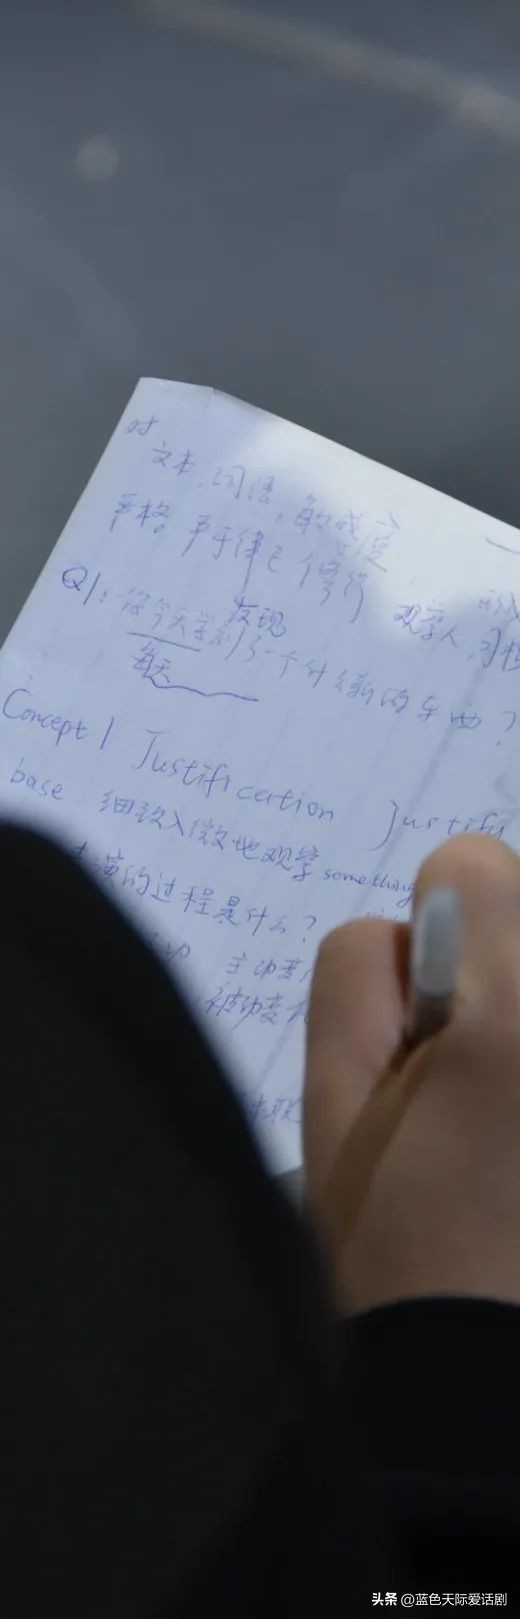 对
文本、词语、的感度
严格 严于律己 修行
观察人、习性
发现
Q1: 你今天学到了一个什么新的东西?
每天
Concept 1 Justification Justify
base 细致入微地观察 something
演的过程是什么?
主动变
被动变
联
头条 @蓝色天际爱话剧